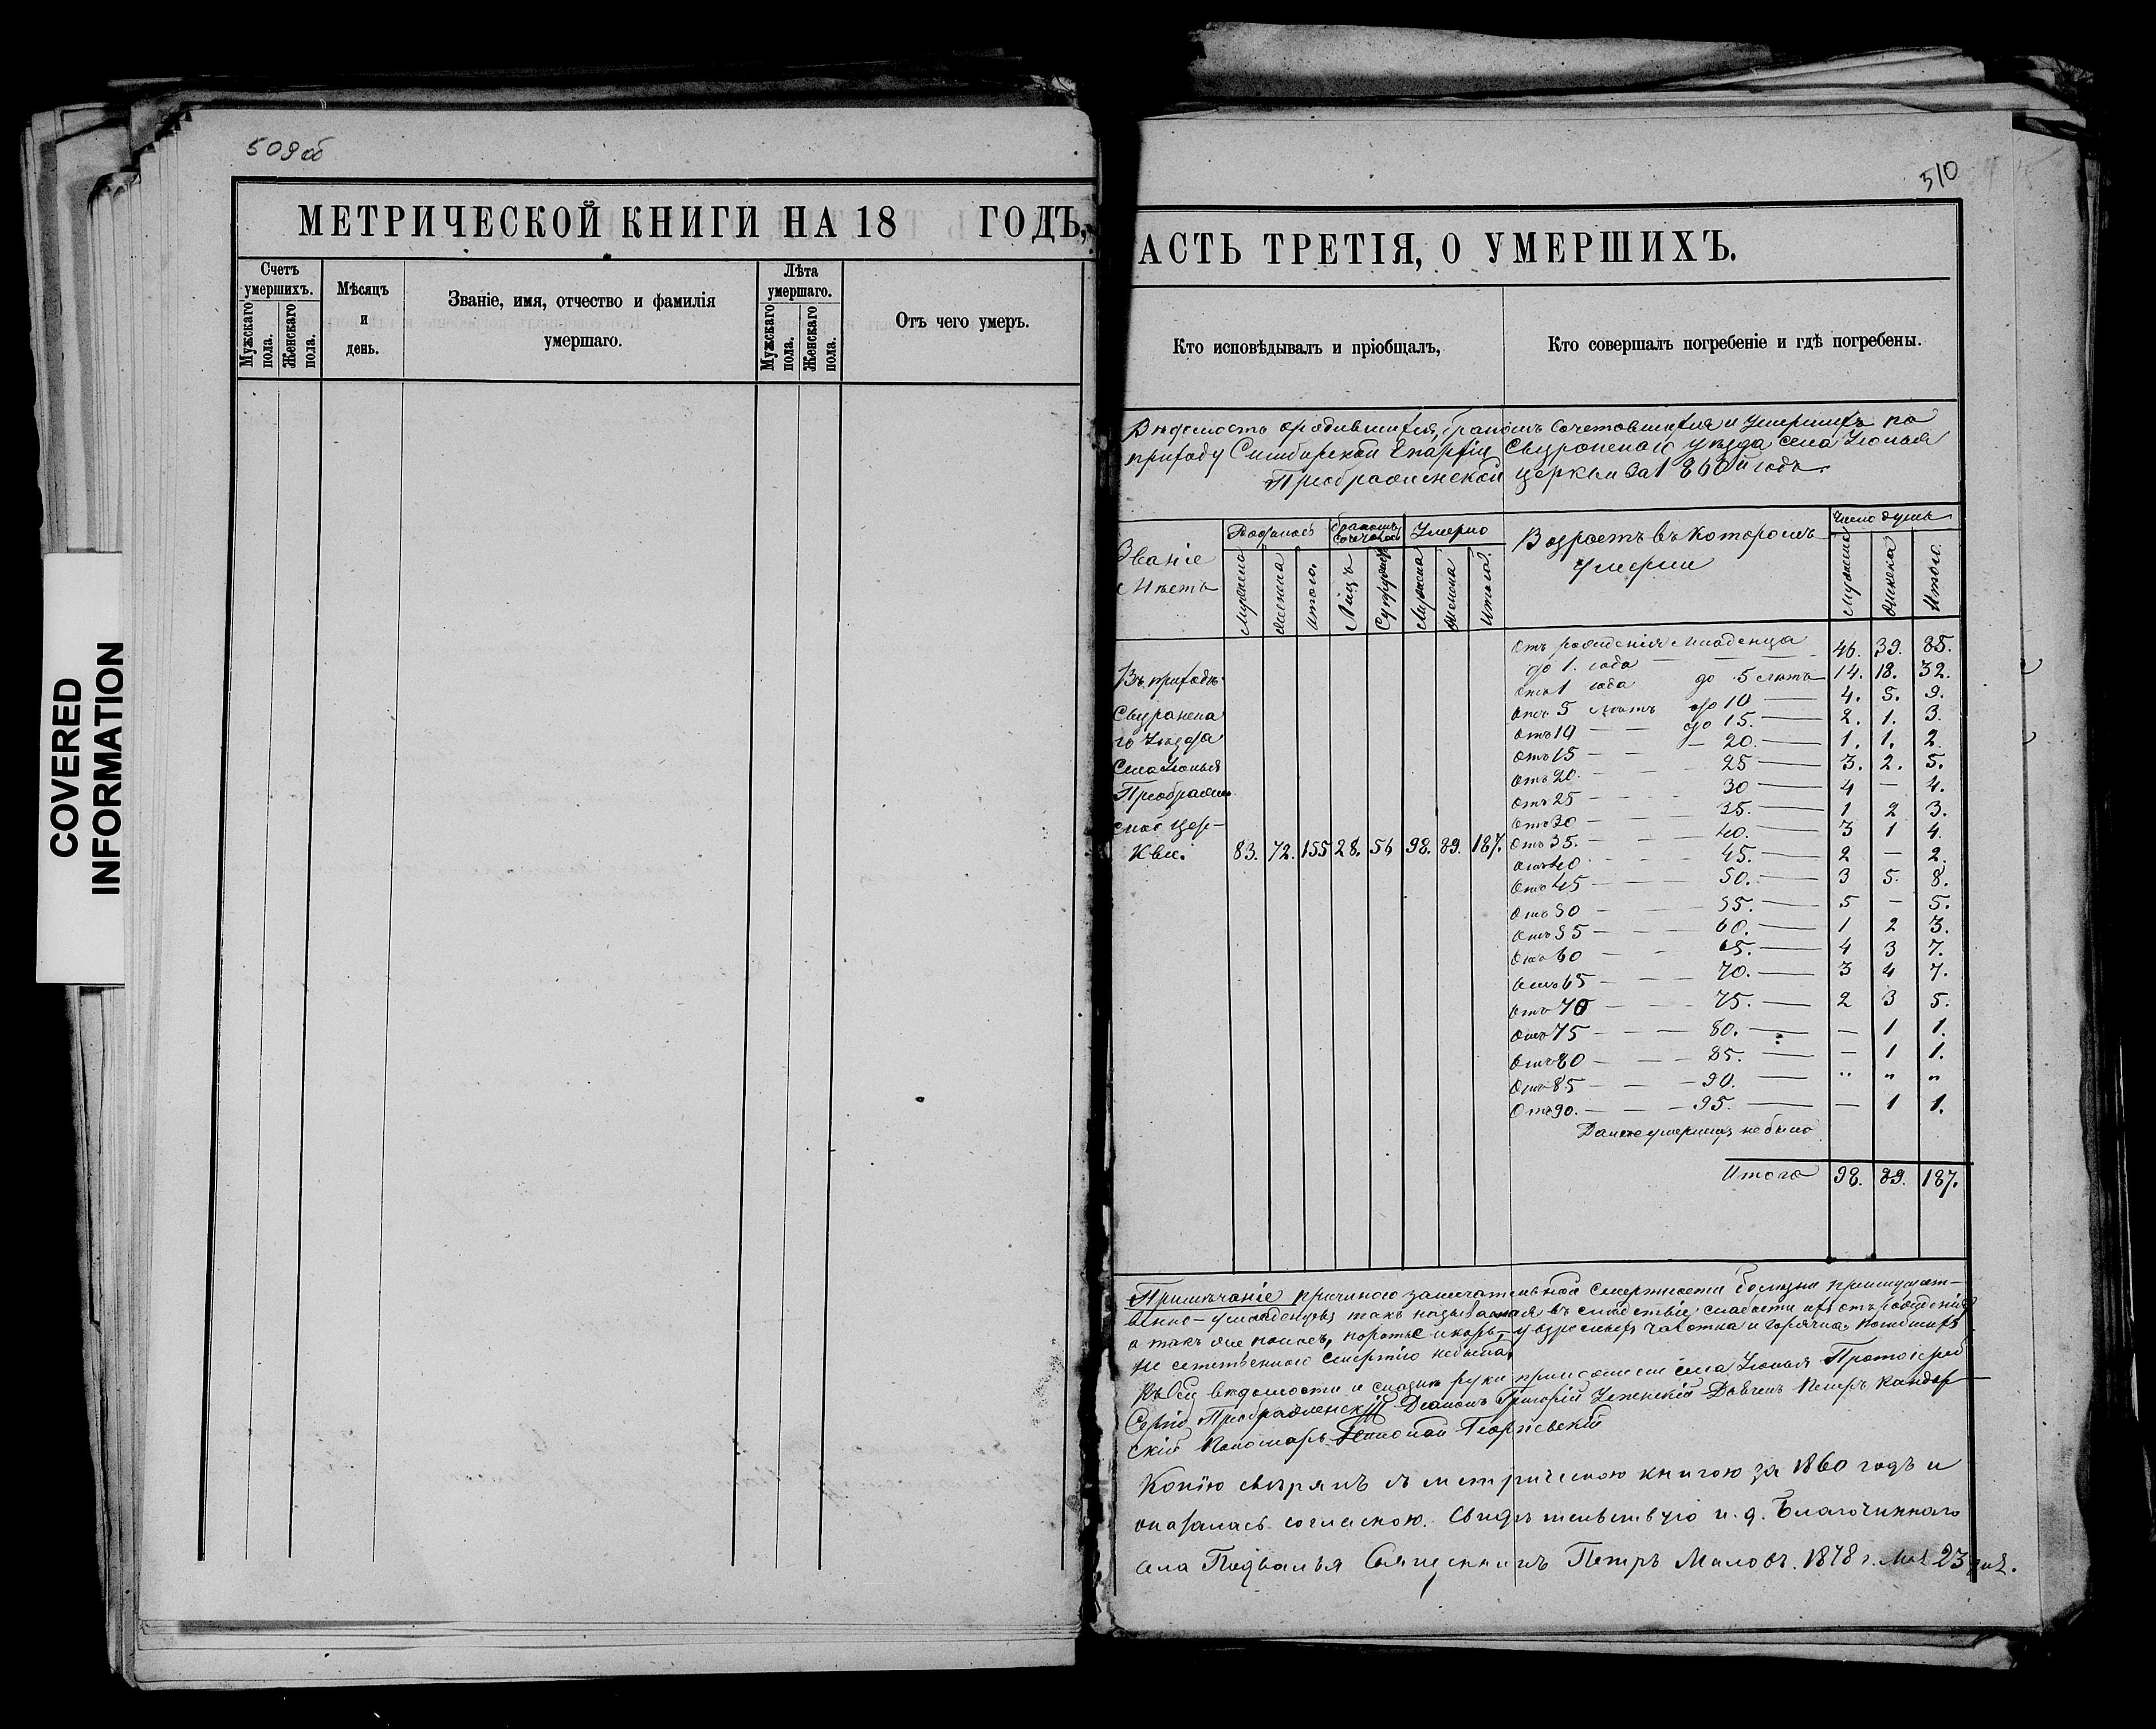 509об
МЕТРИЧЕСКОЙ КНИГИ НА 18 ГОДЪ,
Счетъ умершихъ.
Мужскаго пола.
Женскаго пола.
Мѣсяцъ и день.
Званіе, имя, отчество и фамилія умершаго.
Лѣта умершаго.
Мужскаго пола.
Женскаго пола.
Отъ чего умеръ.
COVERED
INFORMATION
510
АСТЬ ТРЕТІЯ, О УМЕРШИХЪ.
Кто исповѣдывалъ и пріобщалъ,
Кто совершалъ погребеніе и гдѣ погребены.
Вѣдомость о родившихся, бракомъ сочетовшихся и умершихъ по
приходу Симбирской Епархіи Сызранскаго уѣзда села Усолья
Преображенской церкви за 1860й годъ.
Званіе Мѣстъ
Родилось
Мужеска
Женска
Итого.
Бракомъ
Лицъ
Супружествъ
Умерло
Мужеска
Женска
Итого.
Возрастъ въ которомъ умерли
Число душъ
Мужеска
Женска
Итого.
Въ приходѣ
Сызранска
го Уѣзда
Села Усолья
Преображен
ской Цер-
кви. 83. 72. 155 28. 56 98. 89. 187.
Отъ рожденія Младенца
до 1. года 46. 39. 85.
Отъ 1 года до 5 лѣтъ 14. 18. 32.
Отъ 5 лѣтъ до 10 — 4. 5. 9.
Отъ 10 — — до 15. — 2. 1. 3.
Отъ 15 — — 20. — 1. 1. 2.
Отъ 20. — — 25 — 3. 2. 5.
Отъ 25 — — 30 — 4 — 4.
Отъ 30 — — 35. — 1 2 3.
Отъ 35. — — 40. — 3 1 4.
Отъ 40 — — 45. — 2 — 2.
Отъ 45 — — 50. — 3 5. 8.
Отъ 50 — — 55. — 5 — 5.
Отъ 55 — — 60. — 1 2 3.
Отъ 60 — — 65. — 4 3 7.
Отъ 65 — — 70. — 3 4 7.
Отъ 70 — — 75. — 2 3 5.
Отъ 75 — — 80. — — 1 1.
Отъ 80 — — 85. — — 1 1.
Отъ 85 — — 90. — " " "
Отъ 90. — — 95. — — 1 1.
Далѣе умершихъ небыло
Итого 98. 89. 187.
Примѣчаніе причиною замечательной смертности болезни преимущест-
венно у младенцевъ такъ называемая въ слѣдствіе слабости ихъ отъ рожденія
а такъ же поносъ, и корь, у взрослыхъ чахотка и горячка,
не естественною смертію небыло.
Къ сей вѣдомости и руки приложили села Усолья Протоіерей
Сергій Преображенскій Діаконъ Григорій Дьячекъ Петръ
скій Пономарь Георгіевскій
Копію свѣрялъ съ метрическою книгою за 1860 годъ и
оказалась согласною. Свидѣтельствую и. д. Благочиннаго
села Подвалья Священникъ Петръ Маловъ. 1878 г. 23 дня.